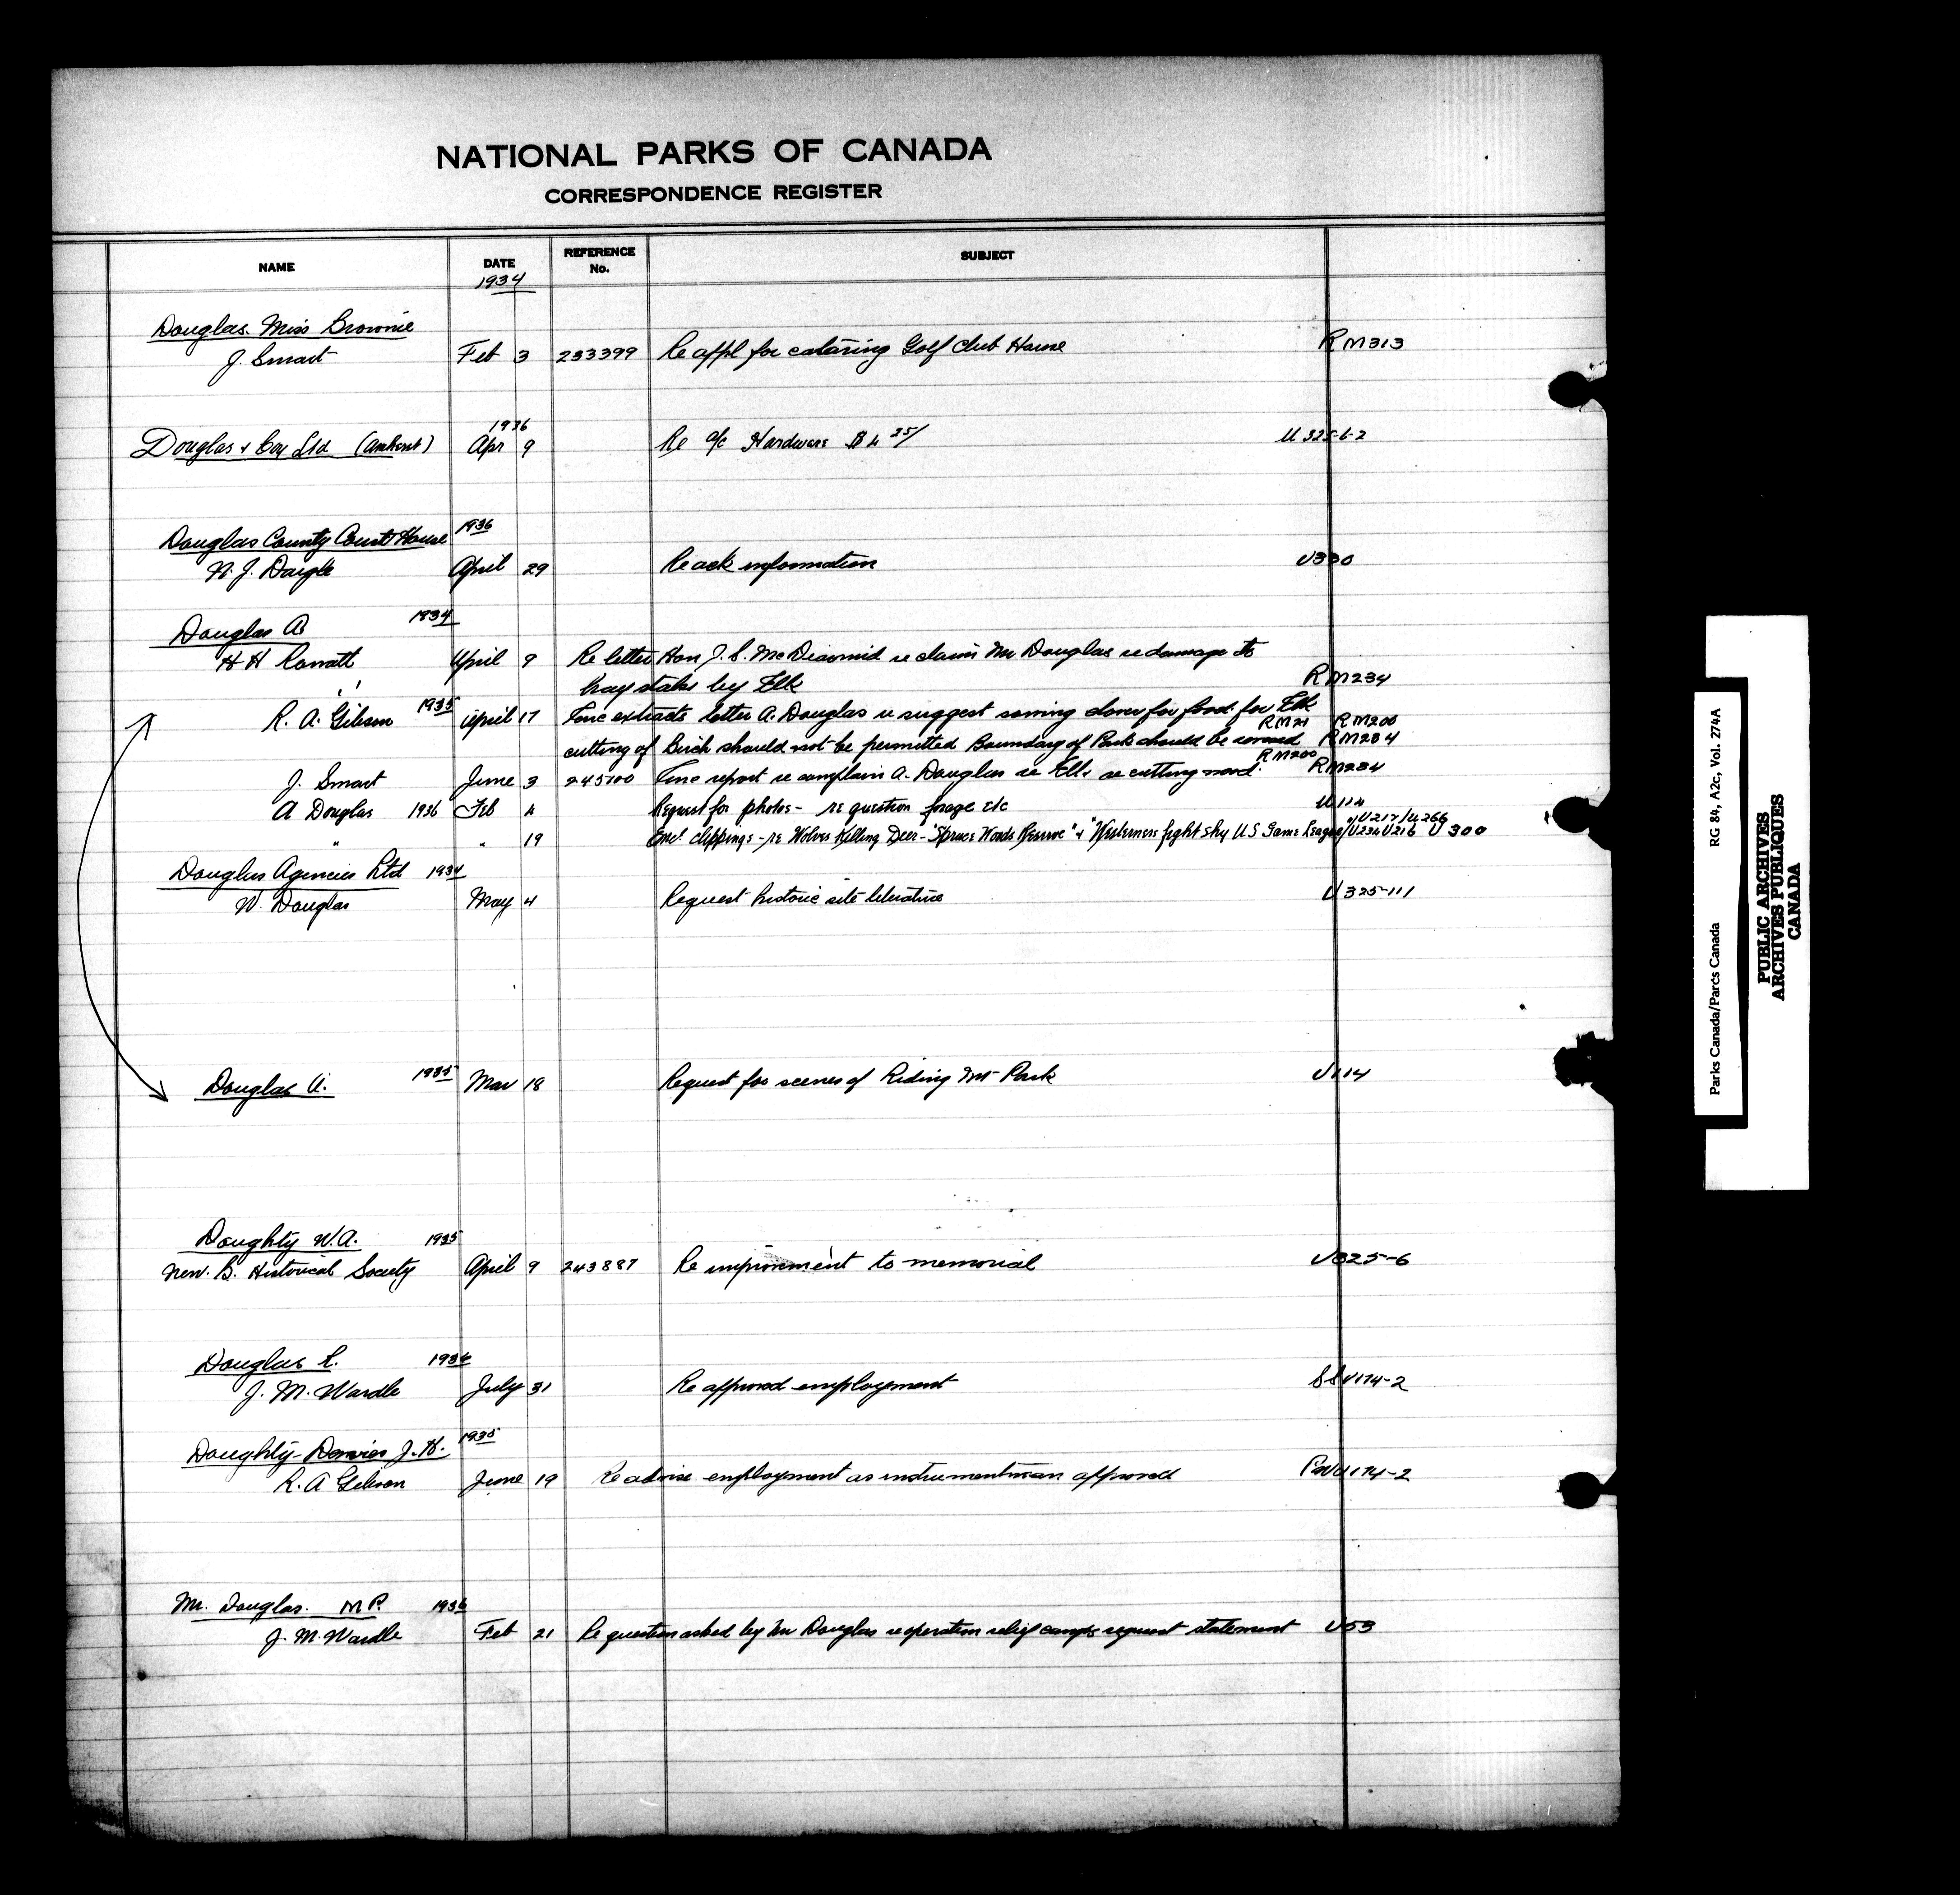 NATIONAL PARKS OF CANADA
CORRESPONDENCE REGISTER
NAME DATE REFERENCE No. SUBJECT
1934
Douglas. Miss Brownie
J. Smart Feb 3 233399 Re appl for catering Golf Club House RM313
1936
Douglas & Coy Ltd (Amherst) Apr 9 Re a/c Hardware $4 25/ U325-6-2
Douglas County Court House 1936
N. J. Daigle April 29 Re ack information U330
Douglas A. 1934
H H April 9 Re letter Hon J. S. McDiarmid re claim Mr Douglas re damage to
hay staks by Elk RM234
R. A. Gibson 1935 April 17 Enc extracts letter A. Douglas re suggest sowing clover for food for Elk
RM21 RM200
cutting of Birch should not be permitted Boundary of Park should be RM234
RM200
J. Smart June 3 245700 Enc report re complain A. Douglas re Elk & re cutting wood. RM234
A Douglas 1936 Feb 4 Request for photos - re question forage etc U114
U217/U266
" " 19 Encl clippings - re Wolves Killing Deer - "Spruce Woods Reserve" & "Westerners fight shy U S Game League" /U234 U216 U300
Douglas Agencies Ltd 1934
W. Douglas May 4 Request historic site literature U325-111
Douglas A. 1935 Mar 18 Request for scenes of Riding Mt Park U114
Doughty W. A. 1935
New. B. Historical Society April 9 243887 Re improvement to memorial U325-6
Douglas R. 1936
J. M. Wardle July 31 Re approved employment U174-2
Doughty-Davies J. H. 1935
R. A Gibson June 19 Re advise employment as instrumentman approved U174-2
Mr. Douglas. M P. 1936
J. M. Wardle Feb 21 Re question asked by Mr Douglas re operation relief camps request statement U53
Parks Canada/Parcs Canada RG 84, A2c, Vol. 274A
PUBLIC ARCHIVES
ARCHIVES PUBLIQUES
CANADA